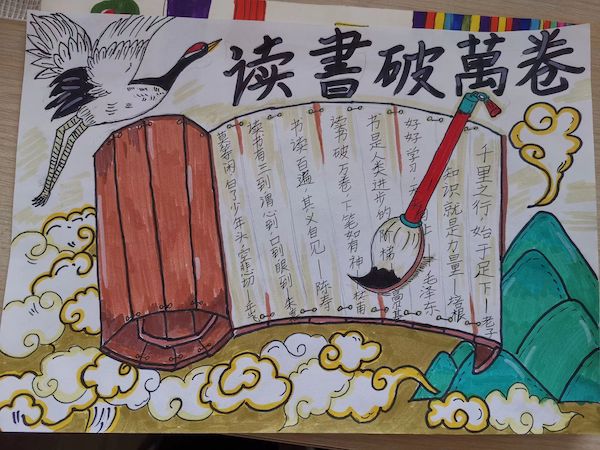 读書破萬卷
千里之行,始于足下—老子
知识就是力量—培根
好好学习,天 上—毛泽东
书是人类进步的阶梯 高
读书破万卷 下笔如有神—杜甫
书读百遍 其义自见—陈寿
读书有三到 谓心到 口到 眼到—朱
莫等闲 白了少年头 空悲切—岳